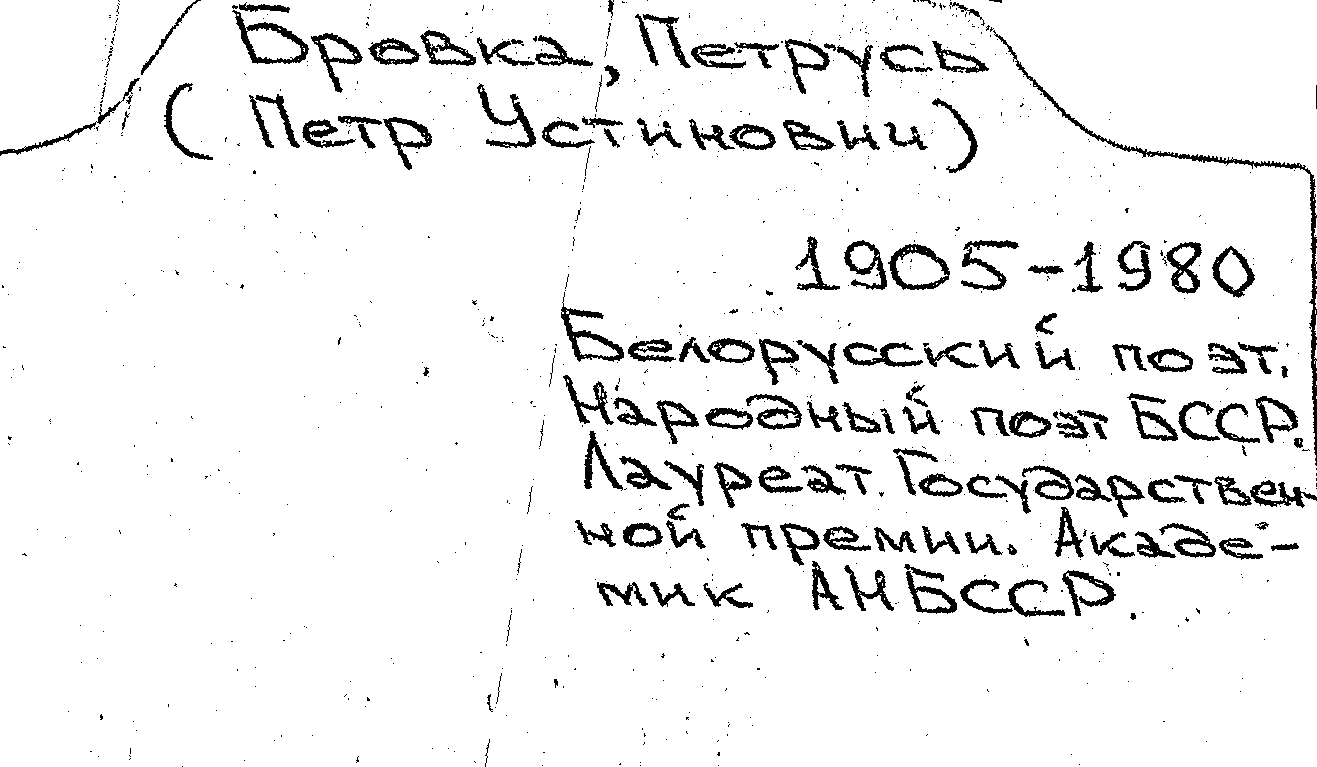 Бровка, Петрусь
(Петр Устинович)
1905-1980
Белорусский поэт.
Народный поэт БССР.
Лауреат Государствен-
ной премии. Акаде-
мик АН БССР.